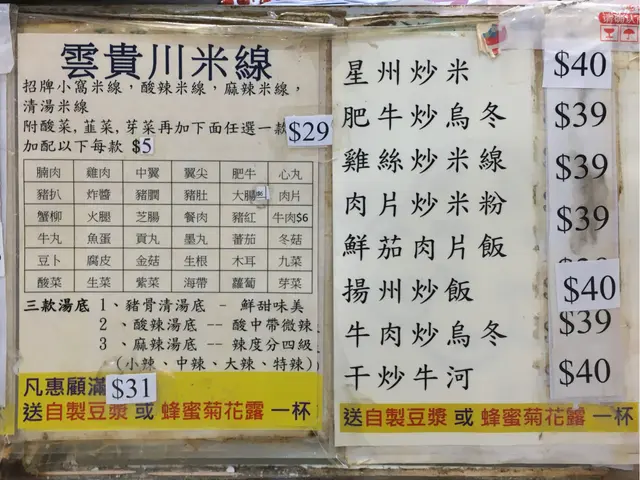 雲貴川米線
招牌小窩米線，酸辣米線，麻辣米線，
清湯米線
附酸菜，韮菜，芽菜再加下面任選一款 $29
加配以下每款 $5
腩肉 雞肉 中翼 翼尖 肥牛 心丸
豬扒 炸醬 豬膶 豬肚 大腸 肉片
蟹柳 火腿 芝腸 餐肉 豬紅 牛肉$6
牛丸 魚蛋 貢丸 墨丸 蕃茄 冬菇
豆卜 腐皮 金菇 生根 木耳 九菜
酸菜 生菜 紫菜 海帶 蘿蔔 芽菜
三款湯底 1、豬骨清湯底 – 鮮甜味美
2、酸辣湯底 -- 酸中帶微辣
3、麻辣湯底 -- 辣度分四級
(小辣、中辣、大辣、特辣)
凡惠顧滿 $31
送自製豆漿 或 蜂蜜菊花露 一杯
星州炒米 $40
肥牛炒烏冬 $39
雞絲炒米線 $39
肉片炒米粉 $39
鮮茄肉片飯
揚州炒飯 $40
牛肉炒烏冬 $39
干炒牛河 $40
送自製豆漿 或 蜂蜜菊花露 一杯